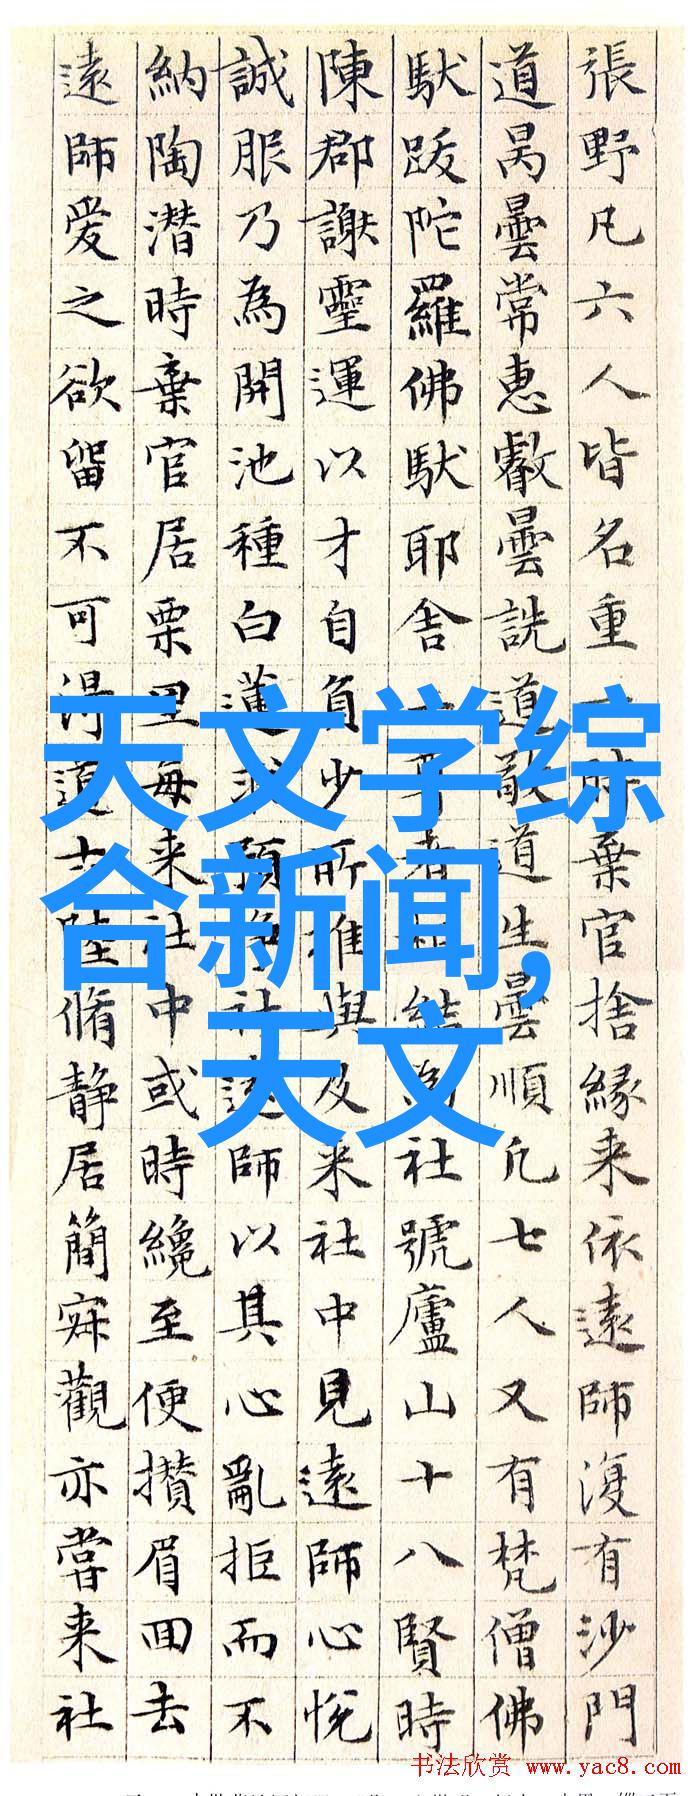 張野凡六人皆名重一時棄官捨緣来依遠師復有沙門
道昺曇常惠叡曇詵道敬道生曇順凡七人又有梵僧佛
馱跋陀羅佛馱耶舍二尊者相結為社號廬山十八賢時
陳郡謝靈運以才自負少所推與及来社中見遠師心悅
誠服乃為開池種白蓮求預净社遠師以其心亂拒而不
納陶潛時棄官居栗里每来社中或時纔至便攢眉回去
遠師爱之欲留不可得道士陸脩静居簡寂觀亦嘗来社
天文学综
合新闻,
天文
书法欣赏 www.yac8.com